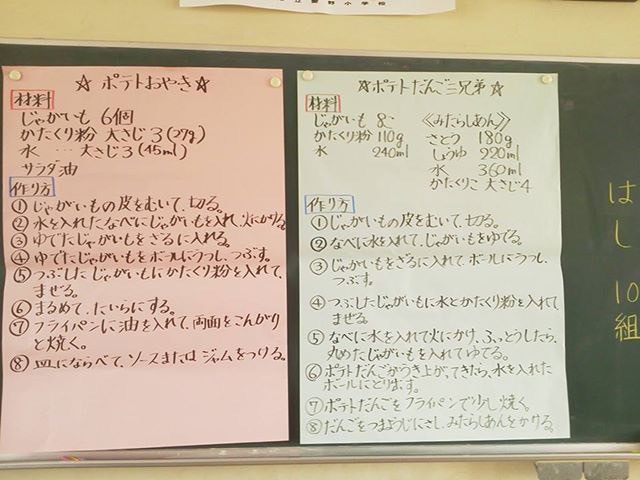 小学校
☆ ポテトおやき ☆
材料
じゃがいも 6個
かたくり粉 大さじ3(27g)
水 … 大さじ3(45ml)
サラダ油
作り方
①じゃがいもの皮をむいて、切る。
②水を入れたなべにじゃがいもを入れ、火にかける。
③ゆでたじゃがいもをざるに入れる。
④ゆでたじゃがいもをボールにうつし、つぶす。
⑤つぶしたじゃがいもにかたくり粉を入れて、
まぜる。
⑥まるめて、たいらにする。
⑦フライパンに油を入れて、両面をこんがり
と焼く。
⑧皿にならべて、ソースまたは ジャムをつける。
☆ポテトだんご三兄弟☆
材料
じゃがいも 8こ
かたくり粉 110g
水 240ml
《みたらしあん》
さとう 180g
しょうゆ 220ml
水 360ml
かたくりこ 大さじ4
作り方
①じゃがいもの皮をむいて、切る。
②なべに水を入れて、じゃがいもをゆでる。
③じゃがいもをざるに入れて ボールにうつし、
つぶす。
④つぶしたじゃがいもに水とかたくり粉を入れて、
まぜる。
⑤なべに水を入れて火にかけ、ふっとうしたら、
丸めたじゃがいもを入れてゆでる。
⑥ポテトだんごがうき上がってきたら、水を入れた
ボールにとります。
⑦ポテトだんごをフライパンで少し焼く。
⑧だんごをつまようじにさし、みたらしあんをかける。
はし 10組